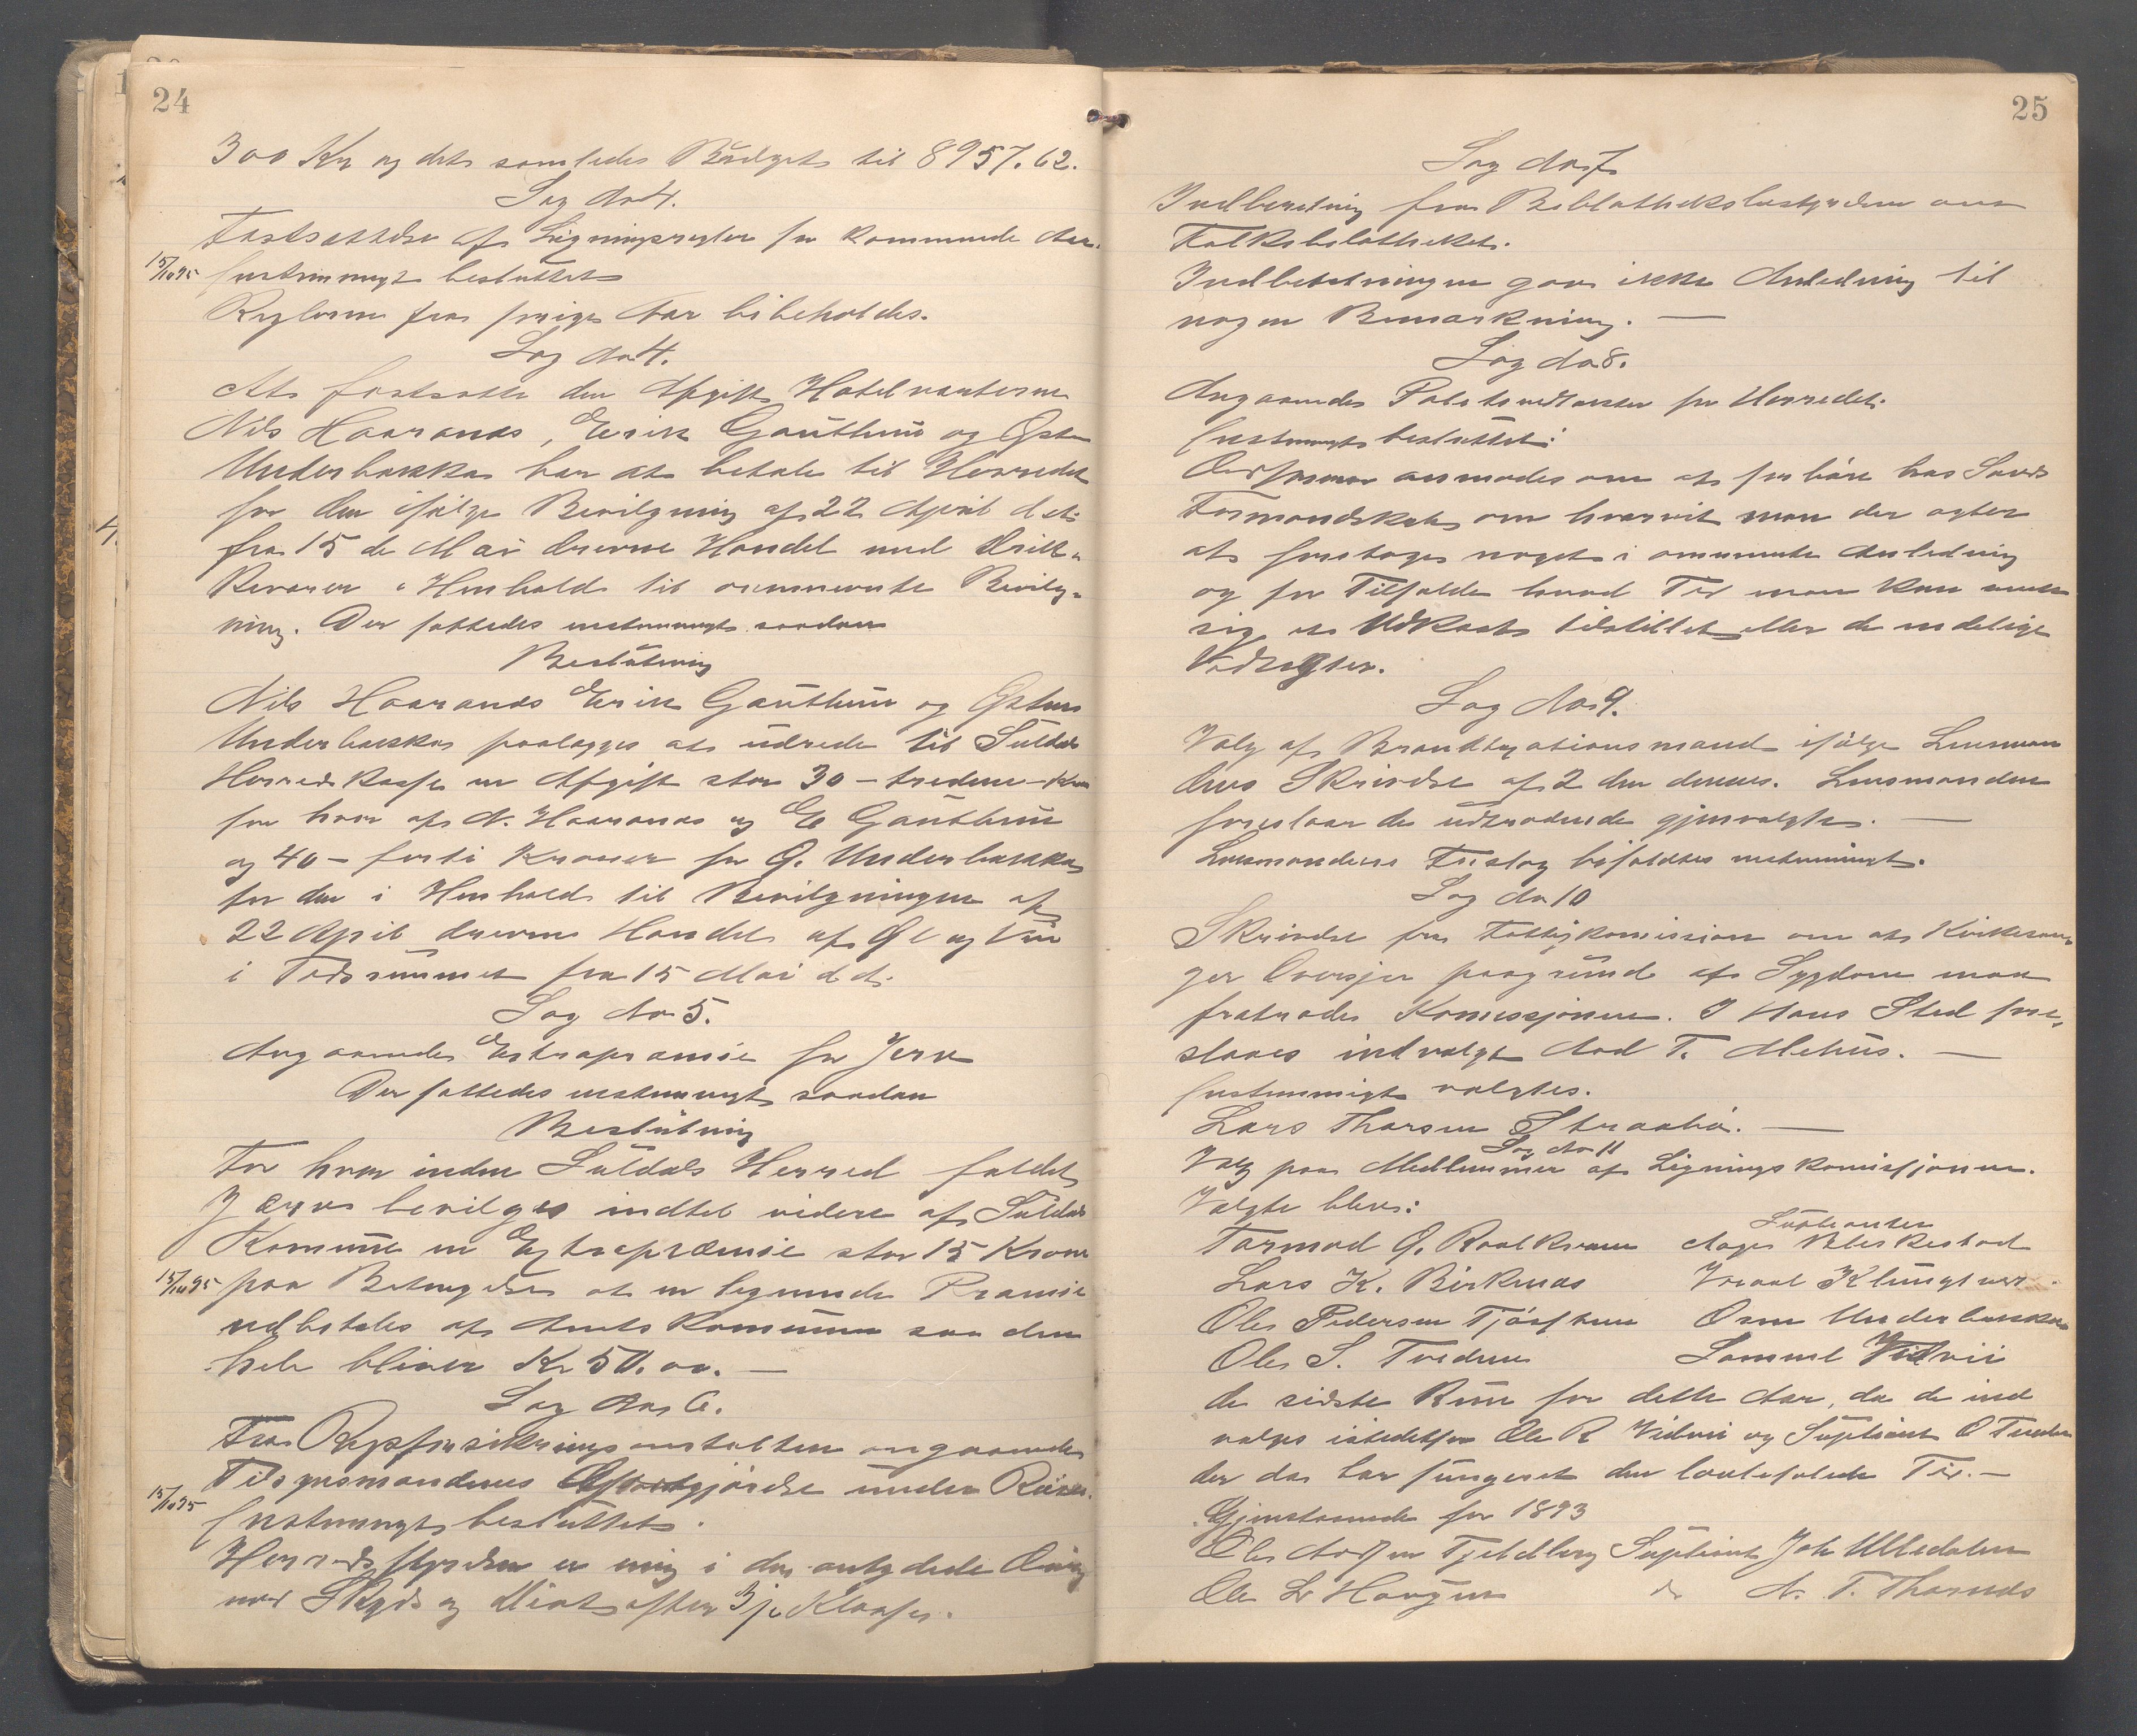 24
300 Kr og det samlede Budget til 8957.62.
Sag No 4.
Fastsættelse af Ligningsregler for kommende Aar.
15/10 95 Enstemmigt besluttet
Reglerne fra forrige Aar bibeholdes.
Sag No 4.
At fastsætte den Afgift Hotelværterne
Nils Haaranas, Erik Gauthun og Østen
Underbakka har at betale til Herredet
for den ifølge Bevilgning af 22 April d. A.
fra 15 de Mai drevne Handel med Drik-
kevarer i Henhold til omnævnte Bevilg-
ning. Der fattedes enstemmigt saadan
Beslutning
Nils Haaranas Erik Gauthun og Østen
Underbakka paalægges at udrede til Suldals
Herredskasse en Afgift stor 30 – tredive – Kroner
for hver af N. Haaranas og E Gauthun
og 40 – forti Kroner for Ø. Underbakka
for den i Henhold til Bevilgningen af
22 April drevne Handel af Øl og Vin
i Tidsrummet fra 15 Mai d. A.
Sag No 5.
Angaaende Extrapræmie for Jerv
Der fattedes enstemmigt saadan
Beslutning
For hver inden Suldals Herred fældet
Jærv bevilges indtil videre af Suldals
Komune en Extrapræmie stor 15 Kroner
15/10 95 paa Betingelse at en lignende Præmie
udbetales af Amtskommunen saa den
hele bliver Kr 50.00. —
Sag No 6.
Fra Rigsforsikringsanstalten angaaende
Tilsynsmandenes Godtgjørelse under Reiser.
15/10 95 Enstemmigt besluttet.
Herredsstyrelsen er enig i den antydede
med Skyds og Diæt efter 3je Klasse.
25
Sag No 7
Indberetning fra Bibliothekbestyrelsen om
Folkebibliotheket.
Indberetningen gav ikke Anledning til
nogen Bemærkning. —
Sag No 8.
Angaaende Politivedtægter for Herredet.
Enstemmigt besluttet:
Ordføreren anmodes om at forhøre hos Sands
Formandskab om hvorvidt man der agter
at foretage noget i omnævnte Anledning
og for Tilfælde hvad Tid man kan vente
sig et Udkast tilstillet eller de endelige
Vedtægter.
Sag No 9.
Valg af Branktaxationsmænd ifølge Lensmand
Skrivelse af 2 den dennes. Lensmanden
foreslaar de udtrædende gjenvalgte. —
Lensmandens Forslag bifaldtes enstemmigt.
Sag No 10
Skrivelse fra Fattigkomissionen om at Kirkesan-
ger Oversjøen paagrund af Sygdom maa
fratræde Komissjonen. I Hans Sted fore-
slaaes indvalgt Aad T. Mehus. —
Enstemmigt valgtes.
Lars Thorsen Straabø. —
Sag No 11
Valg paa Medlemmer af Ligningskomissjonen.
Valgte blev:
Suppleanter
Tormod G. Roalkvam Aage Bleskestad
Lars K. Birkenæs Klungtveit
Ole Pedersen Tjøsthun Orm Underbakka
Ole S. Tveden Samuel Vidvei
de sidste Kun for dette Aar, da de ind
valges istedetfor Ole R Vidvei og Supleant O Tveden
der da har fungeret den lovbefalede Tid. —
Gjenstaaende for 1893
Ole Tjeldberg Supleant Joh Ulledalen
Ole L Haugen do N. T. Tharnæs